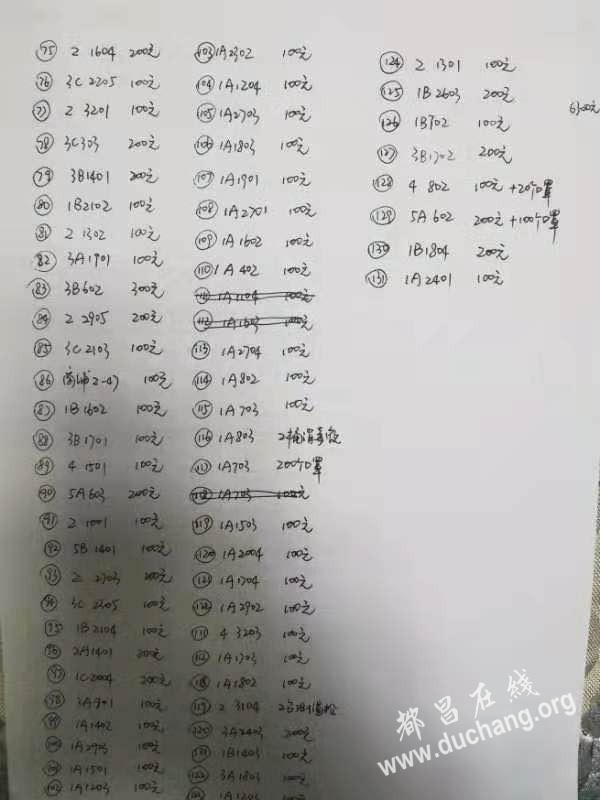 75 2 1604 200元
76 3C 2205 100元
77 2 3201 100元
78 3C303 200元
79 3B1401 200元
80 1B2102 100元
81 2 1302 100元
82 3A1901 100元
83 3B602 300元
84 2 2905 200元
85 3C2103 100元
86 商铺2-47 100元
87 1B1602 100元
88 3B1701 100元
89 4 1501 100元
90 5A603 200元
91 2 1001 100元
92 5B1401 100元
93 2 2703 200元
94 3C 2305 100元
95 1B2104 100元
96 2A1401 200元
97 1C2004 200元
98 3A901 100元
99 1A1402 100元
100 1A2903 100元
101 1A1501 100元
102 1A1203 100元
103 1A2302 100元
104 1A1204 100元
105 1A2703 100元
106 1A1803 100元
107 1A1901 100元
108 1A2701 100元
109 1A1602 100元
110 1A402 100元
111 1A1104 100元
112 1A1603 100元
113 1A2704 100元
114 1A802 100元
115 1A703 100元
116 1A803 2桶消毒液
117 1A703 200个口罩
118 1A703 100元
119 1A1503 100元
120 1A2004 100元
121 1A1704 100元
122 1A2902 100元
111 4 3203 100元
112 1A1703 100元
118 1A1802 100元
119 2 3104
120 3A2403 200元
121 1B1403 100元
122 3A1803 100元
123 1A1203 100元
124 2 1301 100元
125 1B2603 200元
126 1B702 100元
127 3B1702 200元
128 4 802 100元+20个口罩
129 5A602 200元+100个口罩
130 1B1804 200元
131 1A2401 100元
6300元
都昌在线
www.duchang.org